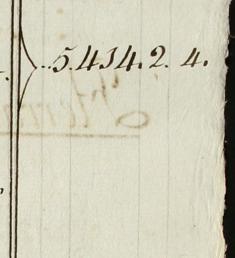 ..5.414.2. 4.